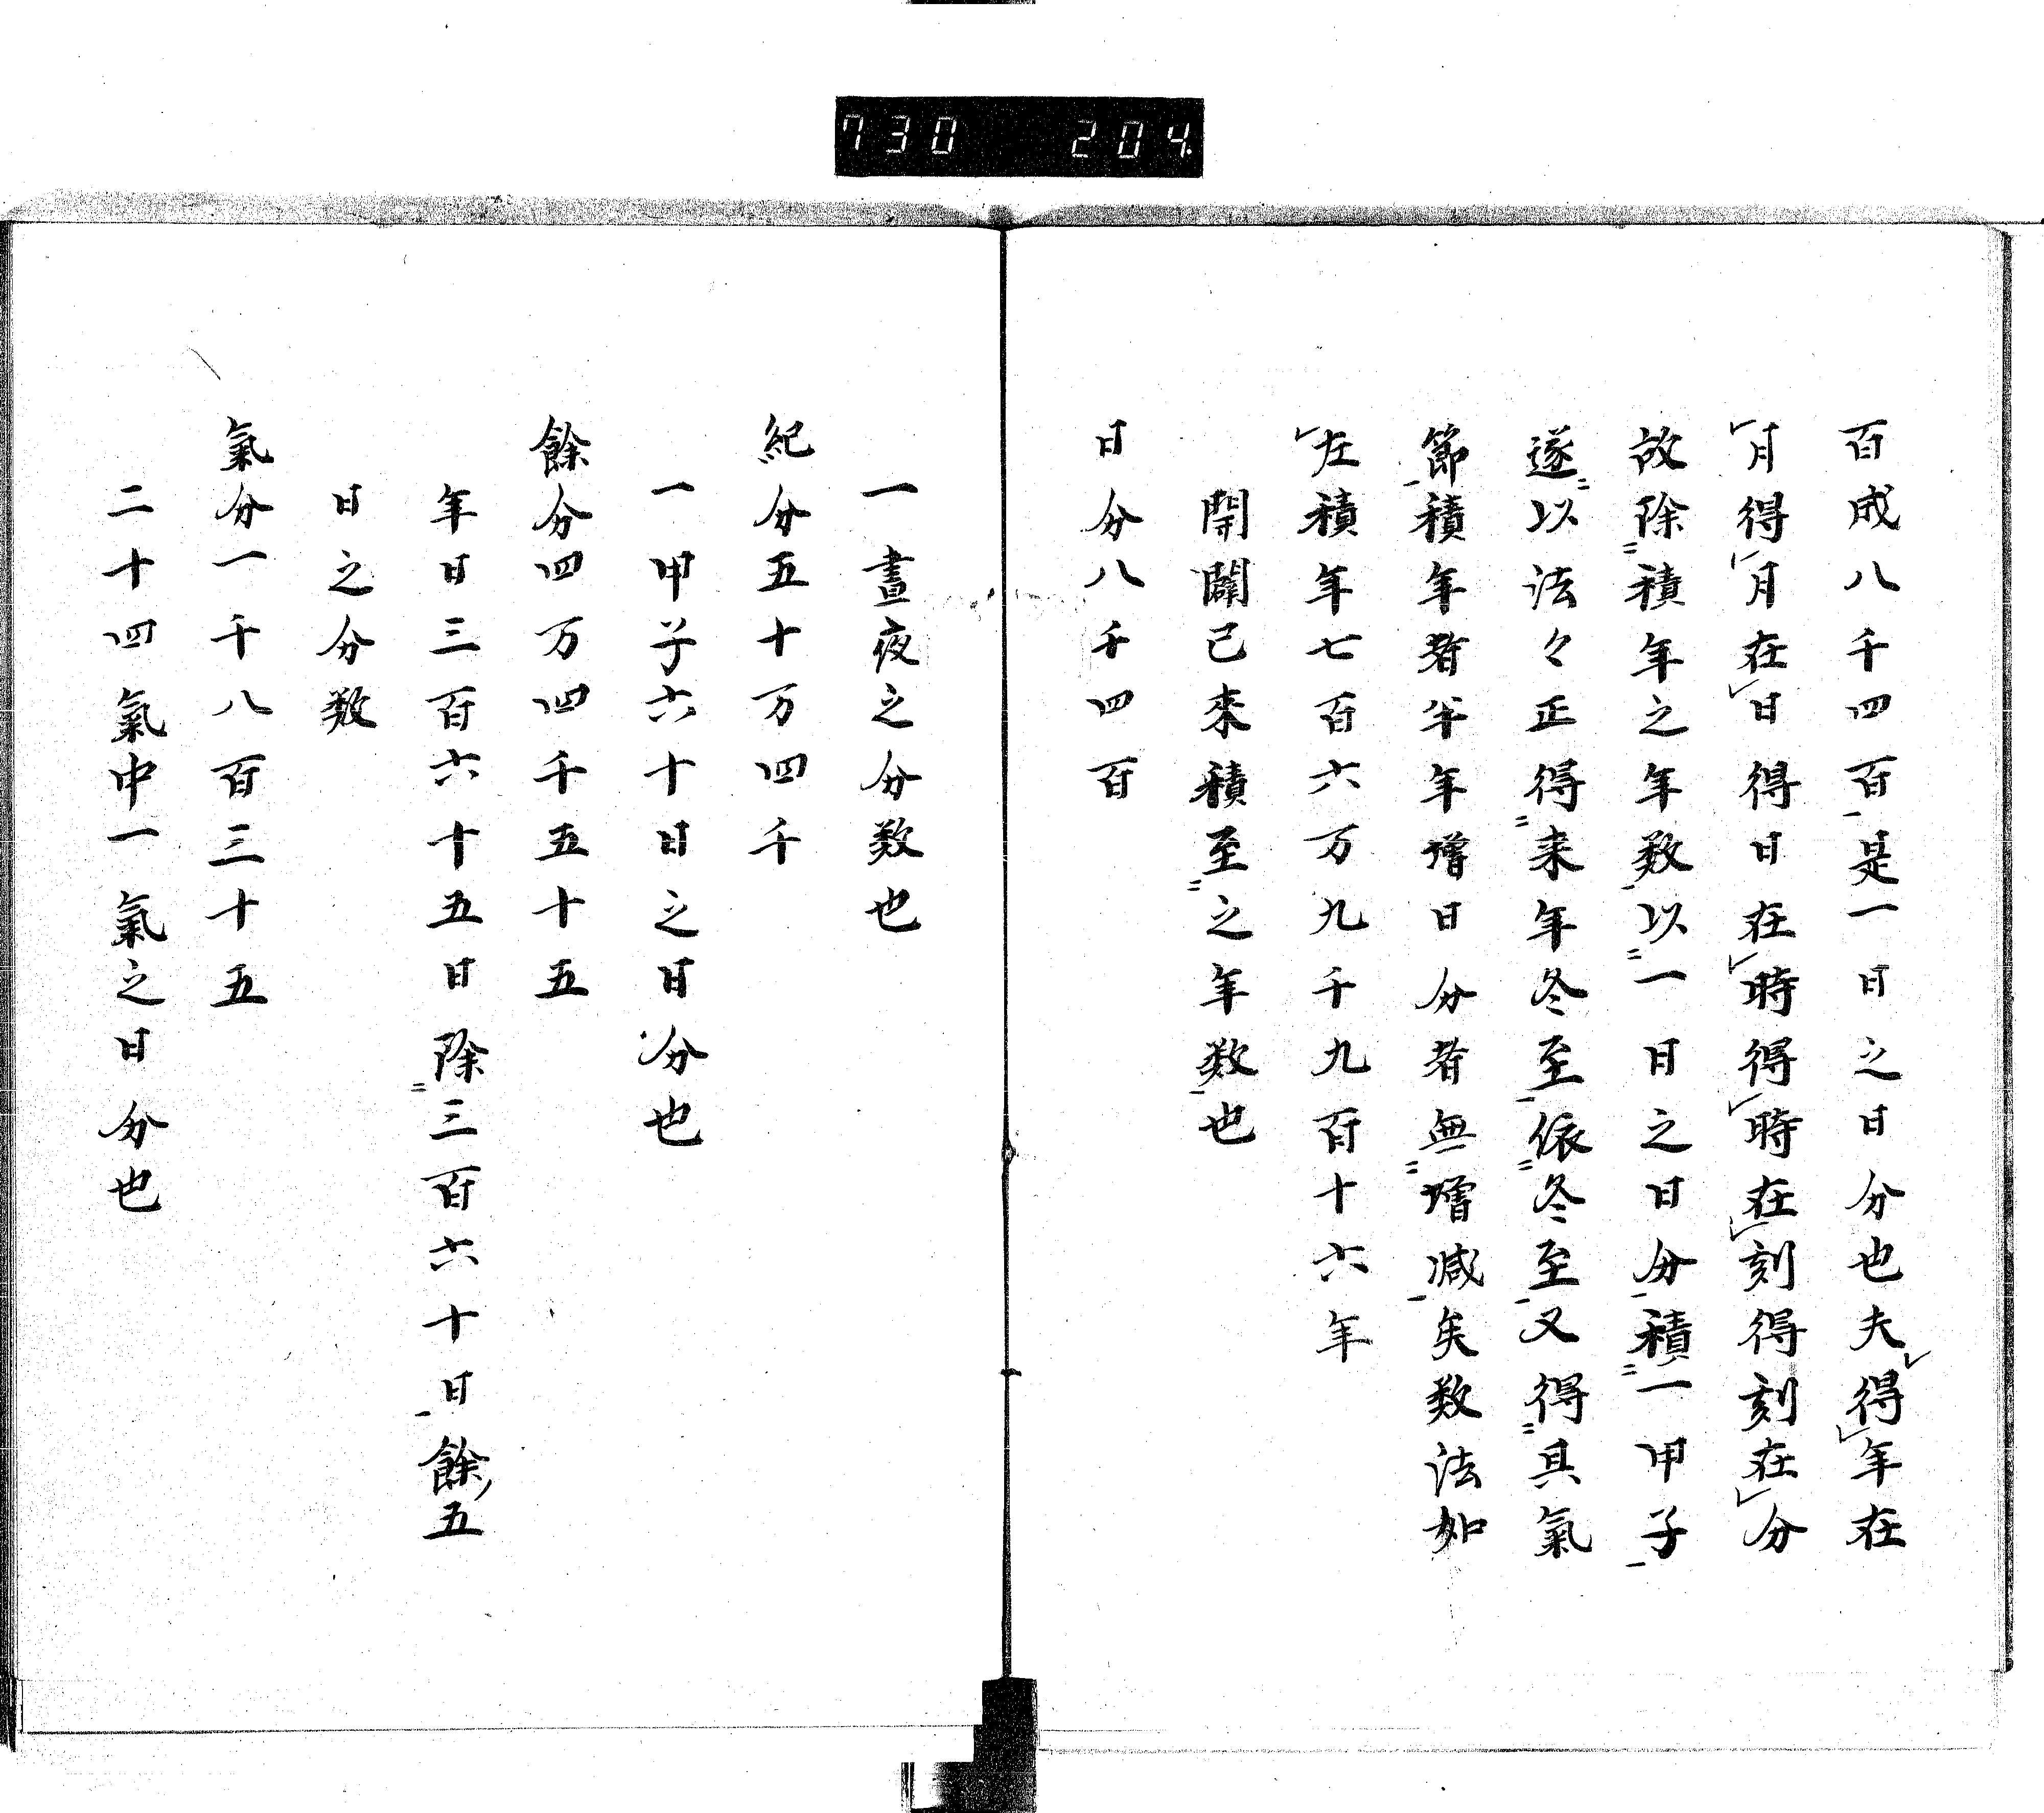 730 204
百成八千四百是一日之日分也夫得年在
月得月在日得日在時得時在刻得刻在分
故除積年之年数以一日之日分積一甲子
遂以法々正得来年冬至依冬至又得其氣
節積年者半年増日分者無増减矣数法如
左積年七百六万九千九百十六年
開闢已來積至之年数也
日分八千四百
一晝夜之分数也
紀分五十万四千
一甲子六十日之日分也
餘分四万四千五十五
年日三百六十五日除三百六十日餘五
日之分数
氣分一千八百三十五
二十四氣中一氣之日分也